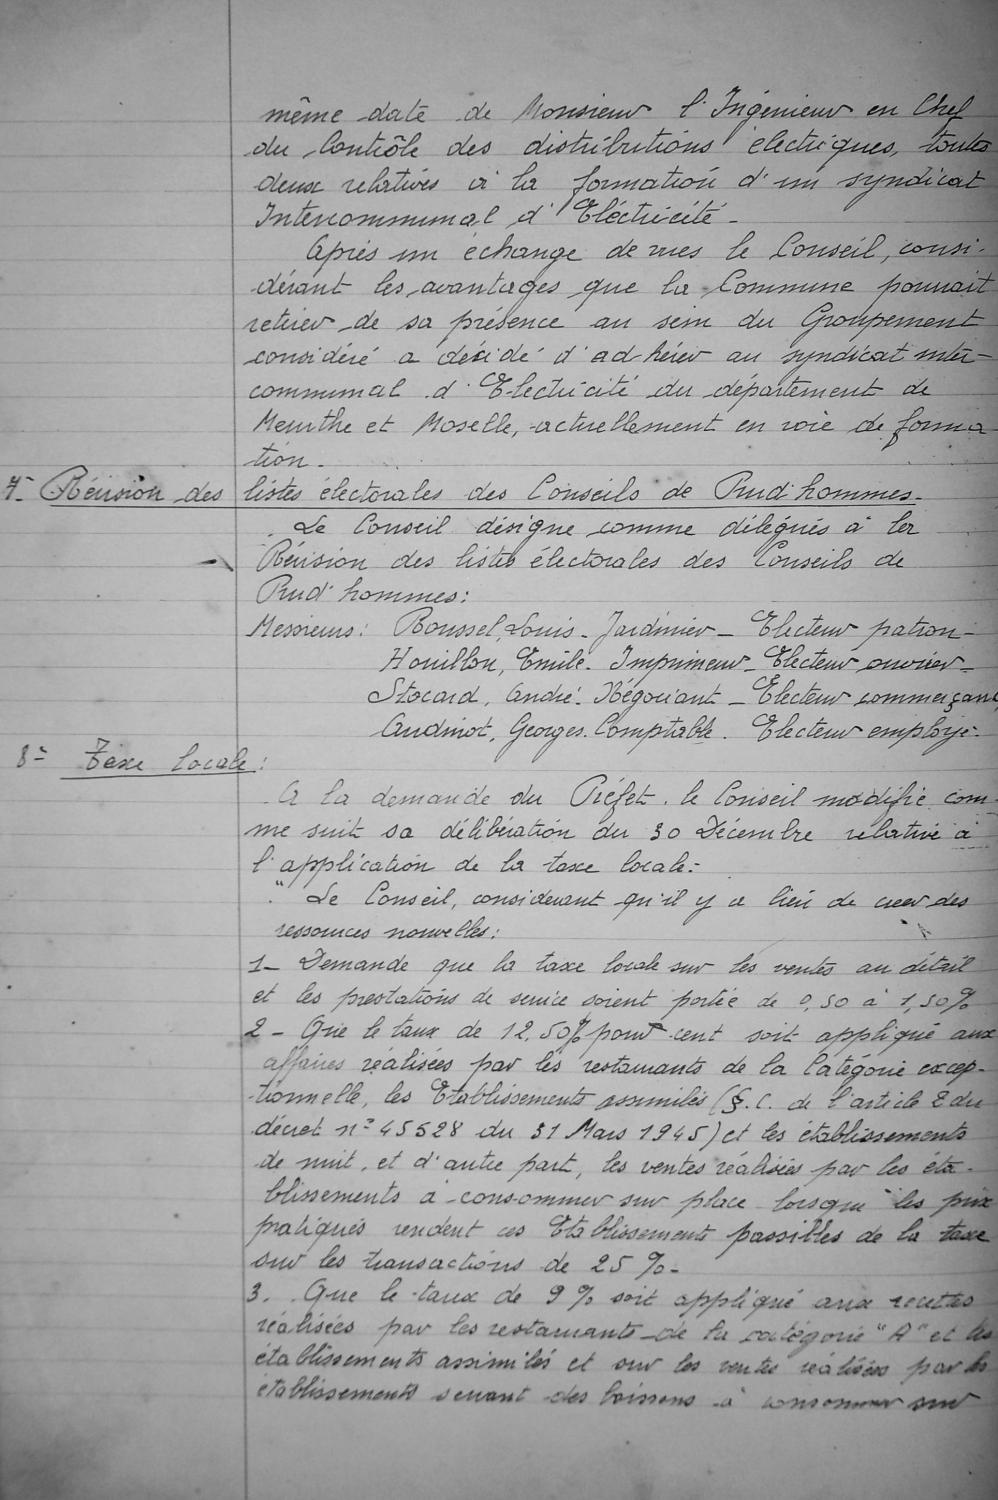 même date de Monsieur l'Ingénieur en Chef
du Contrôle des distributions électriques, toutes
deux relatives à la formation d'un syndicat
Intercommunal d'Electricité -
Après un échange de vues le Conseil, consi-
dérant les avantages que la Commune pourrait
retirer de sa présence au sein du Groupement
considéré a décidé d'adhérer au syndicat inter-
communal d'Electricité du département de
Meurthe et Moselle, actuellement en voie de forma-
tion -
7- Révision des listes électorales des Conseils de Prud'hommes -
Le Conseil désigne comme délégués à la
Révision des listes électorales des Conseils de
Prud'hommes :
Messieurs : Roussel, Louis - Jardinier - Electeur patron -
Houillon, Emile - Imprimeur - Electeur ouvrier -
Stocard, André - Négociant - Electeur commerçant,
Audinot, Georges - Comptable - Electeur employé -
8- Taxe locale :
A la demande du Préfet, le Conseil modifie com-
me suit sa délibération du 30 Décembre relative à
l'application de la taxe locale :
" Le Conseil, considerant qu'il y a lieu de creer des
ressources nouvelles :
1 - Demande que la taxe locale sur les ventes au détail
et les prestations de service soient portée de 0,50 à 1,50%
2 - Que le taux de 12,50% pour cent soit appliqué aux
affaires réalisées par les restaurants de la Catégorie excep-
tionnelle, les Etablissements assimilés (§.C. de l'article 2 du
décret n° 45528 du 31 Mars 1945) et les établissements
de nuit, et d'autre part, les ventes réalisées par les éta-
blissements à consommer sur place lorsque les prix
pratiqués rendent ces Etablissements passibles de la taxe
sur les transactions de 25% -
3. Que le taux de 9% soit appliqué aux recettes
réalisées par les restaurants de la catégorie "A" et les
établissements assimilés et sur les ventes réalisées par les
établissements servant des boissons à consommer sur